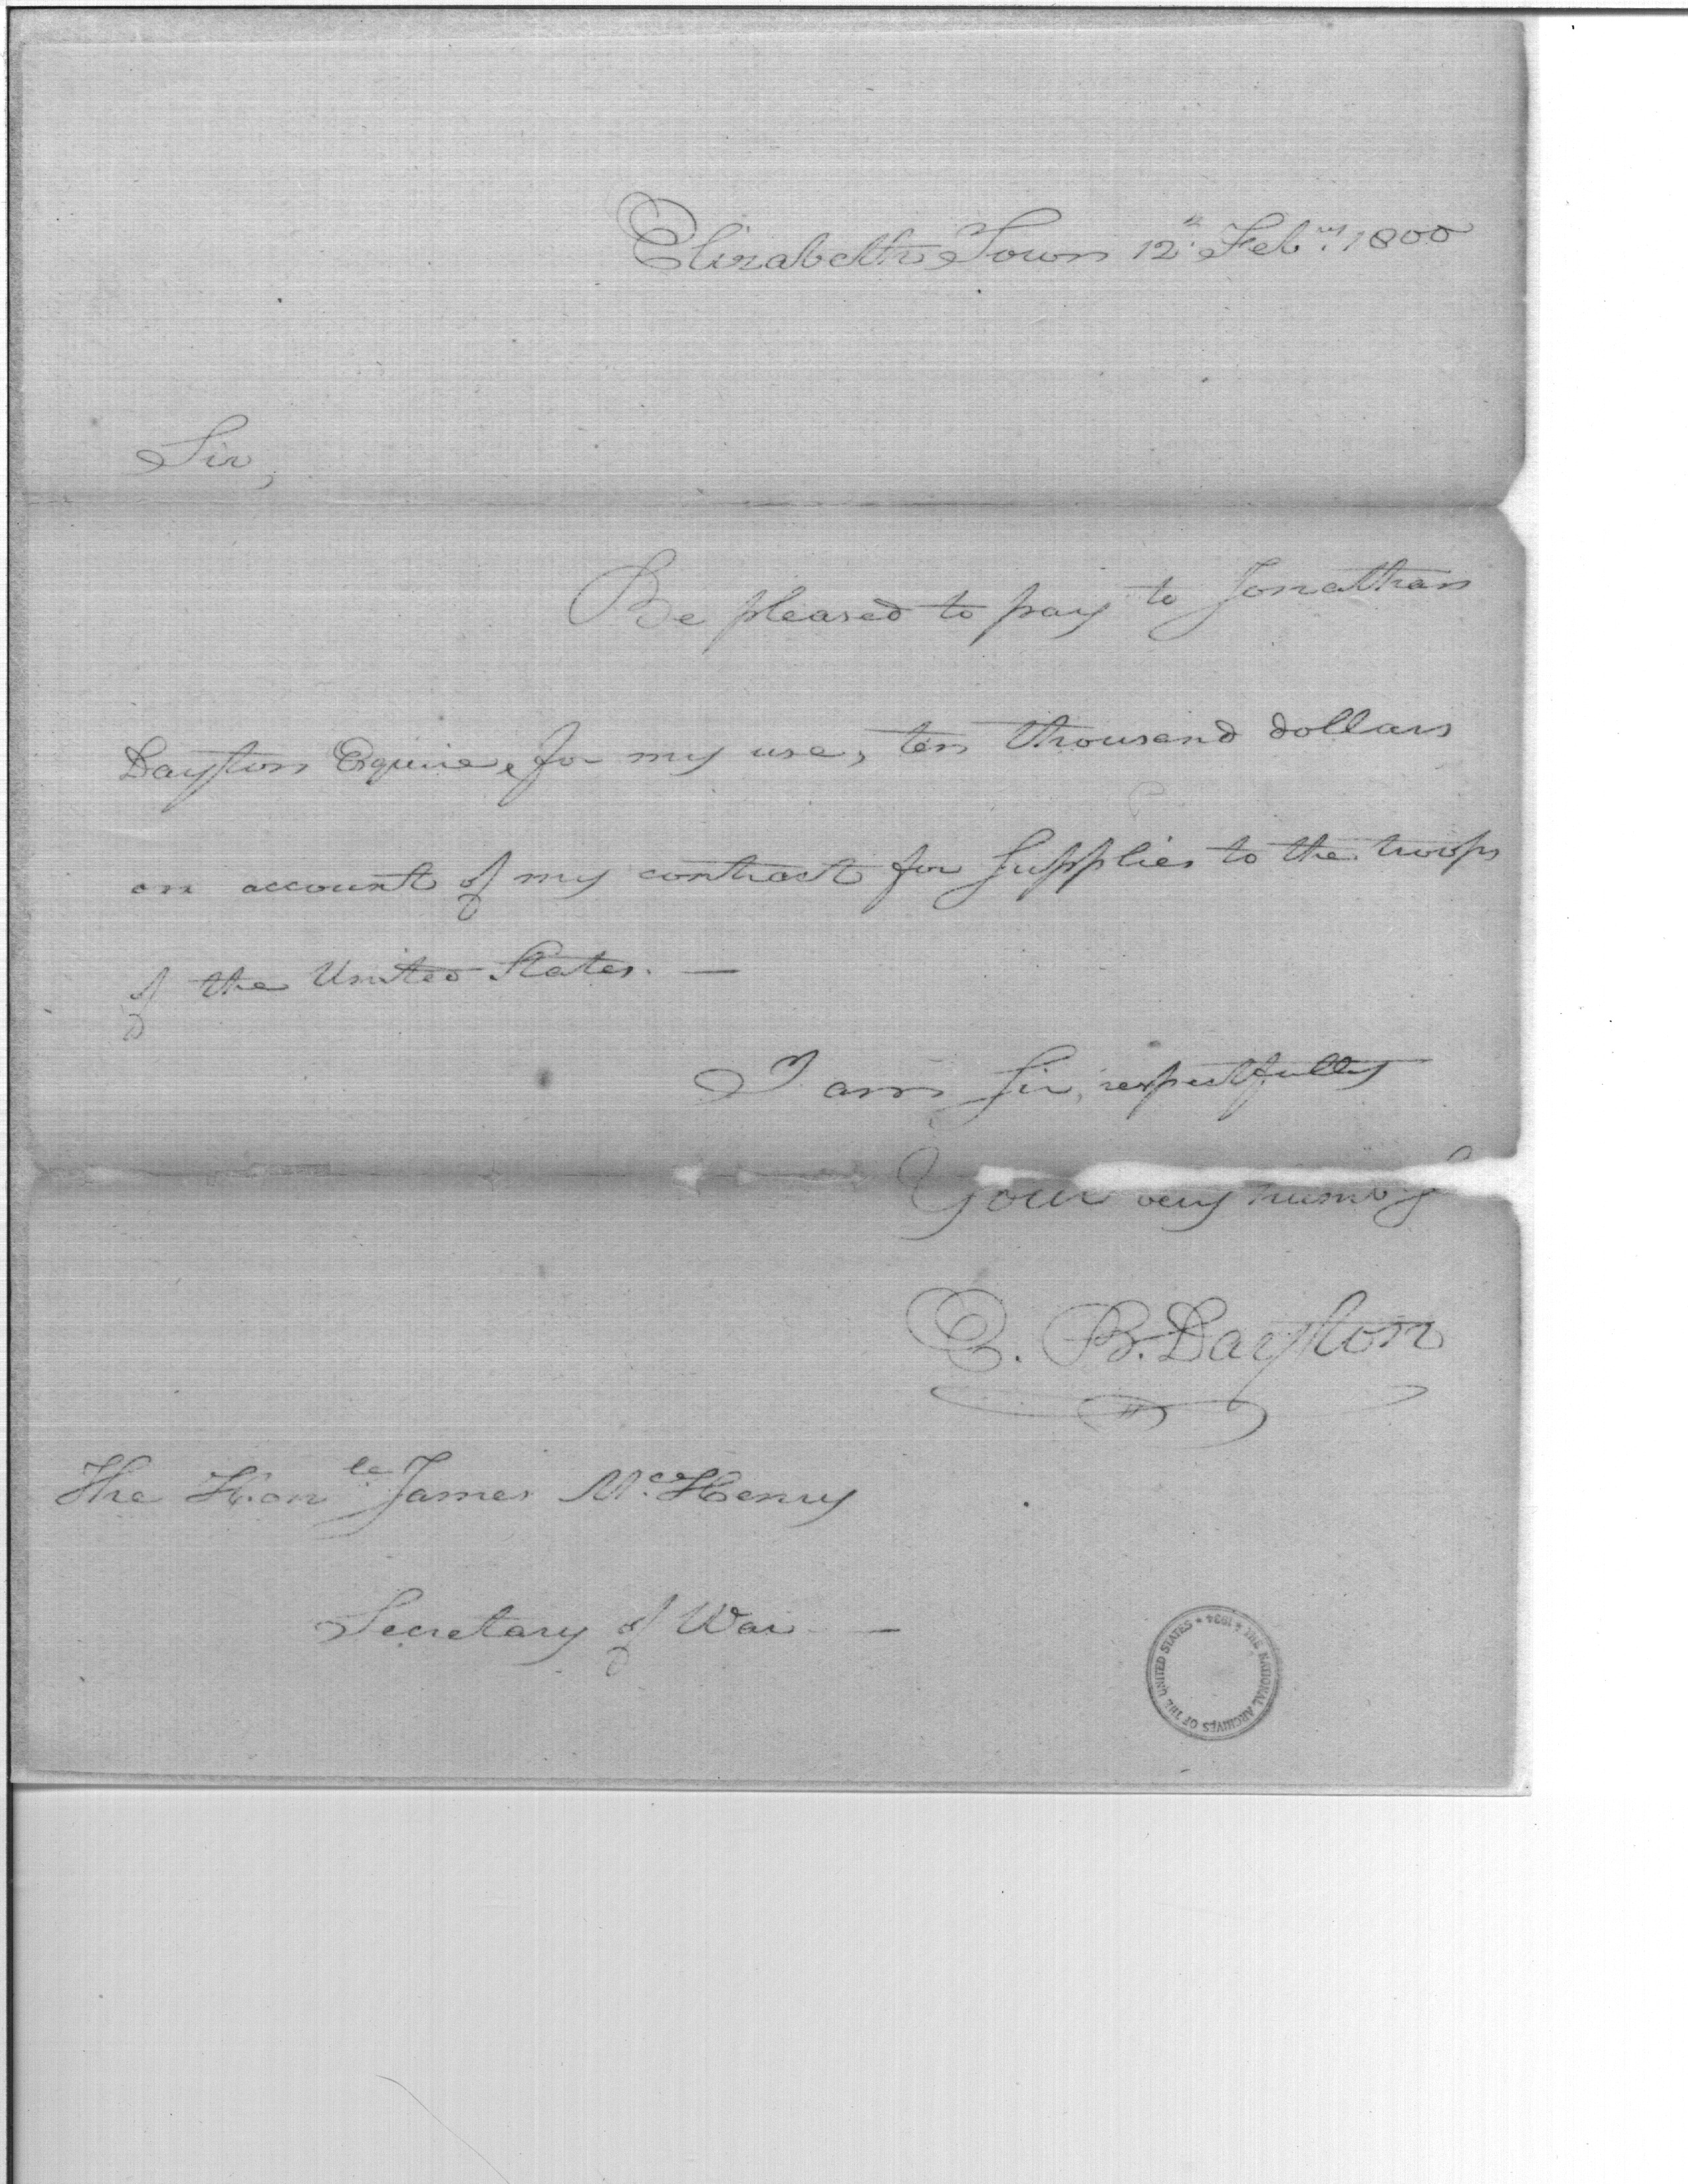 Elizabeth Town 12th Feby. 1800
Sir,
Be pleased to pay to Jonathan
Dayton Esquire, for my use, ten thousand dollars
on account of my contract for supplies to the troops
of the United States. —
I am Sir, respectfully
Your very humb
E. B. Dayton
The Honle James McHenry
Secretary of War —
THE NATIONAL ARCHIVES OF THE UNITED STATES * 1934 *